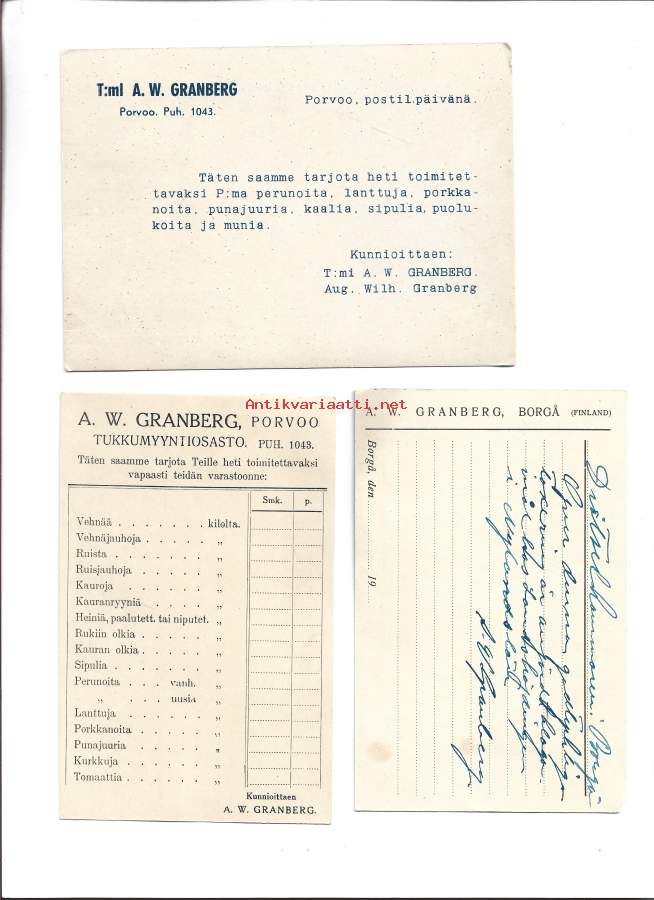 T:ml A. W. GRANBERG
Porvoo. Puh. 1043.
Porvoo. postil.päivänä.
Täten saamme tarjota heti toimitet-
tavaksi P:ma perunoita, lanttuja, porkka-
noita, punajuuria, kaalia, sipulia, puolu-
koita ja munia.
Kunnioittaen:
T:mi A. W. GRANBERG.
Aug. Wilh. Granberg
Antikvariaatti.net
A. W. GRANBERG, PORVOO
TUKKUMYYNTIOSASTO. PUH. 1043.
Täten saamme tarjota Teille heti toimitettavaksi
vapaasti teidän varastoonne:
Smk. p.
Vehnää . . . . . . . kilolta.
Vehnäjauhoja . . . . . „
Ruista . . . . . . . „
Ruisjauhoja . . . . . „
Kauroja . . . . . . „
Kauranryyniä . . . . . „
Heiniä, paalutett. tai niputet. „
Rukiin olkia . . . . . „
Kauran olkia . . . . . „
Sipulia . . . . . . . „
Perunoita . . . vanh. „
„ . . . uusia „
Lanttuja . . . . . . „
Porkkanoita . . . . . „
Punajuuria . . . . . „
Kurkkuja . . . . . . „
Tomaattia . . . . . . „
Kunnioittaen
A. W. GRANBERG.
A. W. GRANBERG, BORGÅ (FINLAND)
Borgå, den 19
Drätselkammaren i Borgå
Över denna
är anförd
hos Landshövdingen
i Nylands län
A. W. Granberg